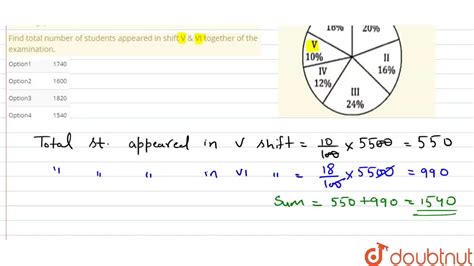 Find total number of students appeared in shift V & VI together of the
examination.
Option1 1740
Option2 1600
Option3 1820
Option4 1540
18% 20%
V
10%
II
16%
IV
12%
III
24%
Total st. appeared in V shift = 10/100 × 5500 = 550
" " " in VI " = 18/100 × 5500 = 990
Sum = 550 + 990 = 1540
doubtnut